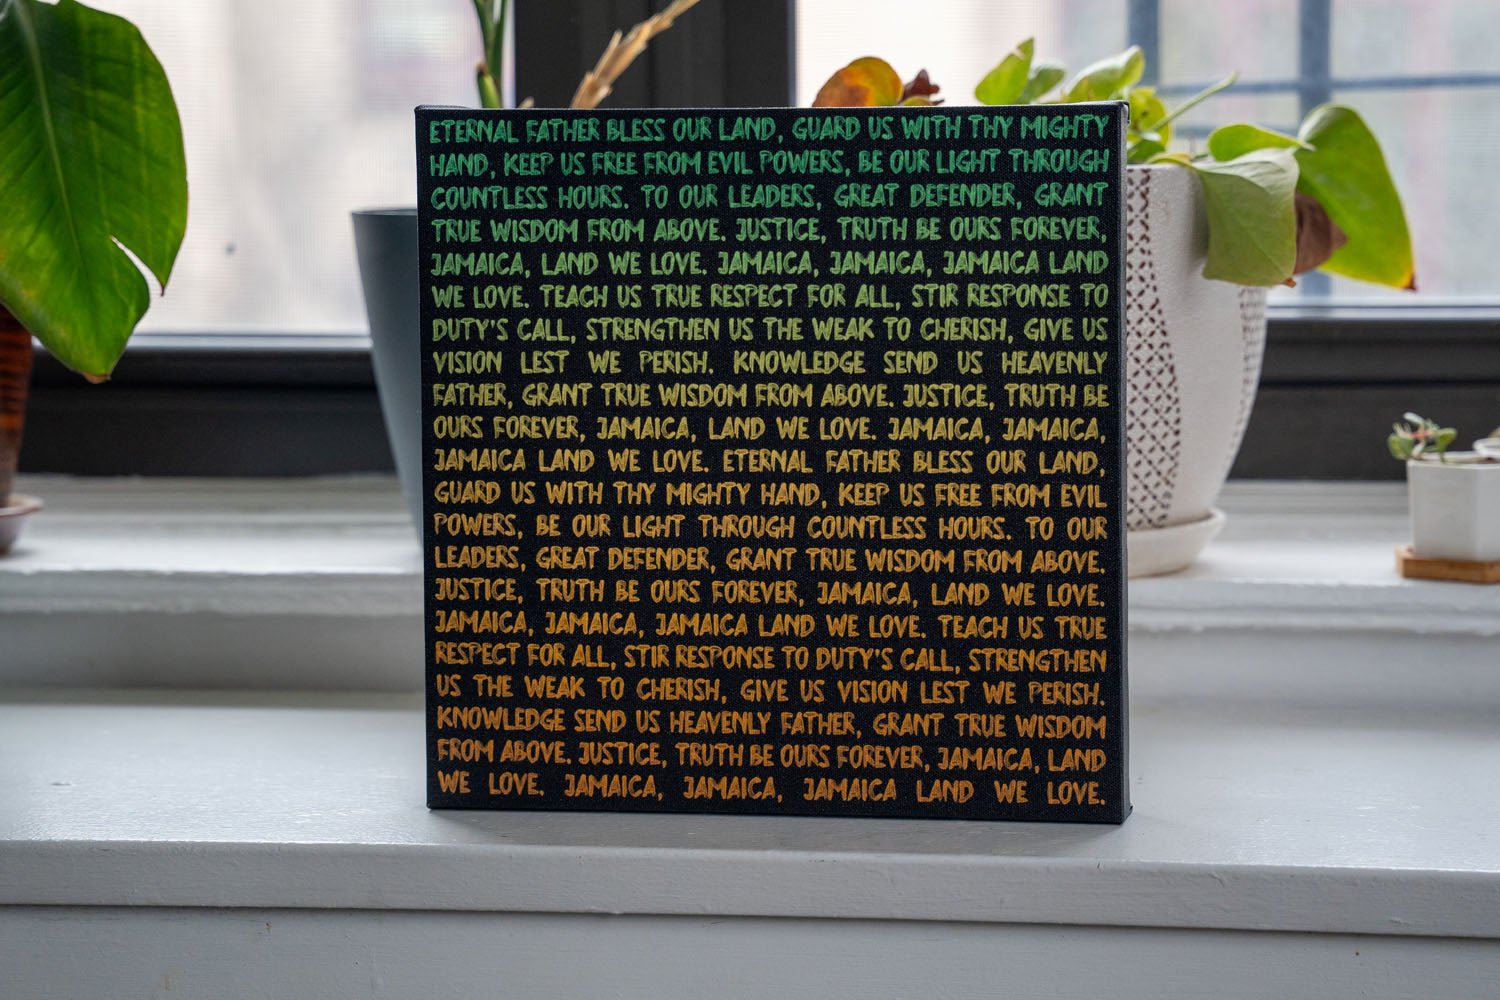 ETERNAL FATHER BLESS OUR LAND, GUARD US WITH THY MIGHTY
HAND, KEEP US FREE FROM EVIL POWERS, BE OUR LIGHT THROUGH
COUNTLESS HOURS. TO OUR LEADERS, GREAT DEFENDER, GRANT
TRUE WISDOM FROM ABOVE. JUSTICE, TRUTH BE OURS FOREVER,
JAMAICA, LAND WE LOVE. JAMAICA, JAMAICA, JAMAICA LAND
WE LOVE. TEACH US TRUE RESPECT FOR ALL, STIR RESPONSE TO
DUTY'S CALL, STRENGTHEN US THE WEAK TO CHERISH, GIVE US
VISION LEST WE PERISH. KNOWLEDGE SEND US HEAVENLY
FATHER, GRANT TRUE WISDOM FROM ABOVE. JUSTICE, TRUTH BE
OURS FOREVER, JAMAICA, LAND WE LOVE. JAMAICA, JAMAICA,
JAMAICA LAND WE LOVE. ETERNAL FATHER BLESS OUR LAND,
GUARD US WITH THY MIGHTY HAND, KEEP US FREE FROM EVIL
POWERS, BE OUR LIGHT THROUGH COUNTLESS HOURS. TO OUR
LEADERS, GREAT DEFENDER, GRANT TRUE WISDOM FROM ABOVE.
JUSTICE, TRUTH BE OURS FOREVER, JAMAICA, LAND WE LOVE.
JAMAICA, JAMAICA, JAMAICA LAND WE LOVE. TEACH US TRUE
RESPECT FOR ALL, STIR RESPONSE TO DUTY'S CALL, STRENGTHEN
US THE WEAK TO CHERISH, GIVE US VISION LEST WE PERISH.
KNOWLEDGE SEND US HEAVENLY FATHER, GRANT TRUE WISDOM
FROM ABOVE. JUSTICE, TRUTH BE OURS FOREVER, JAMAICA, LAND
WE LOVE. JAMAICA, JAMAICA, JAMAICA LAND WE LOVE.